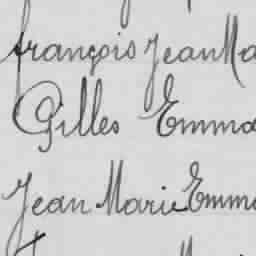 françois Jean Ma
Gilles Emma
Jean Marie Emma